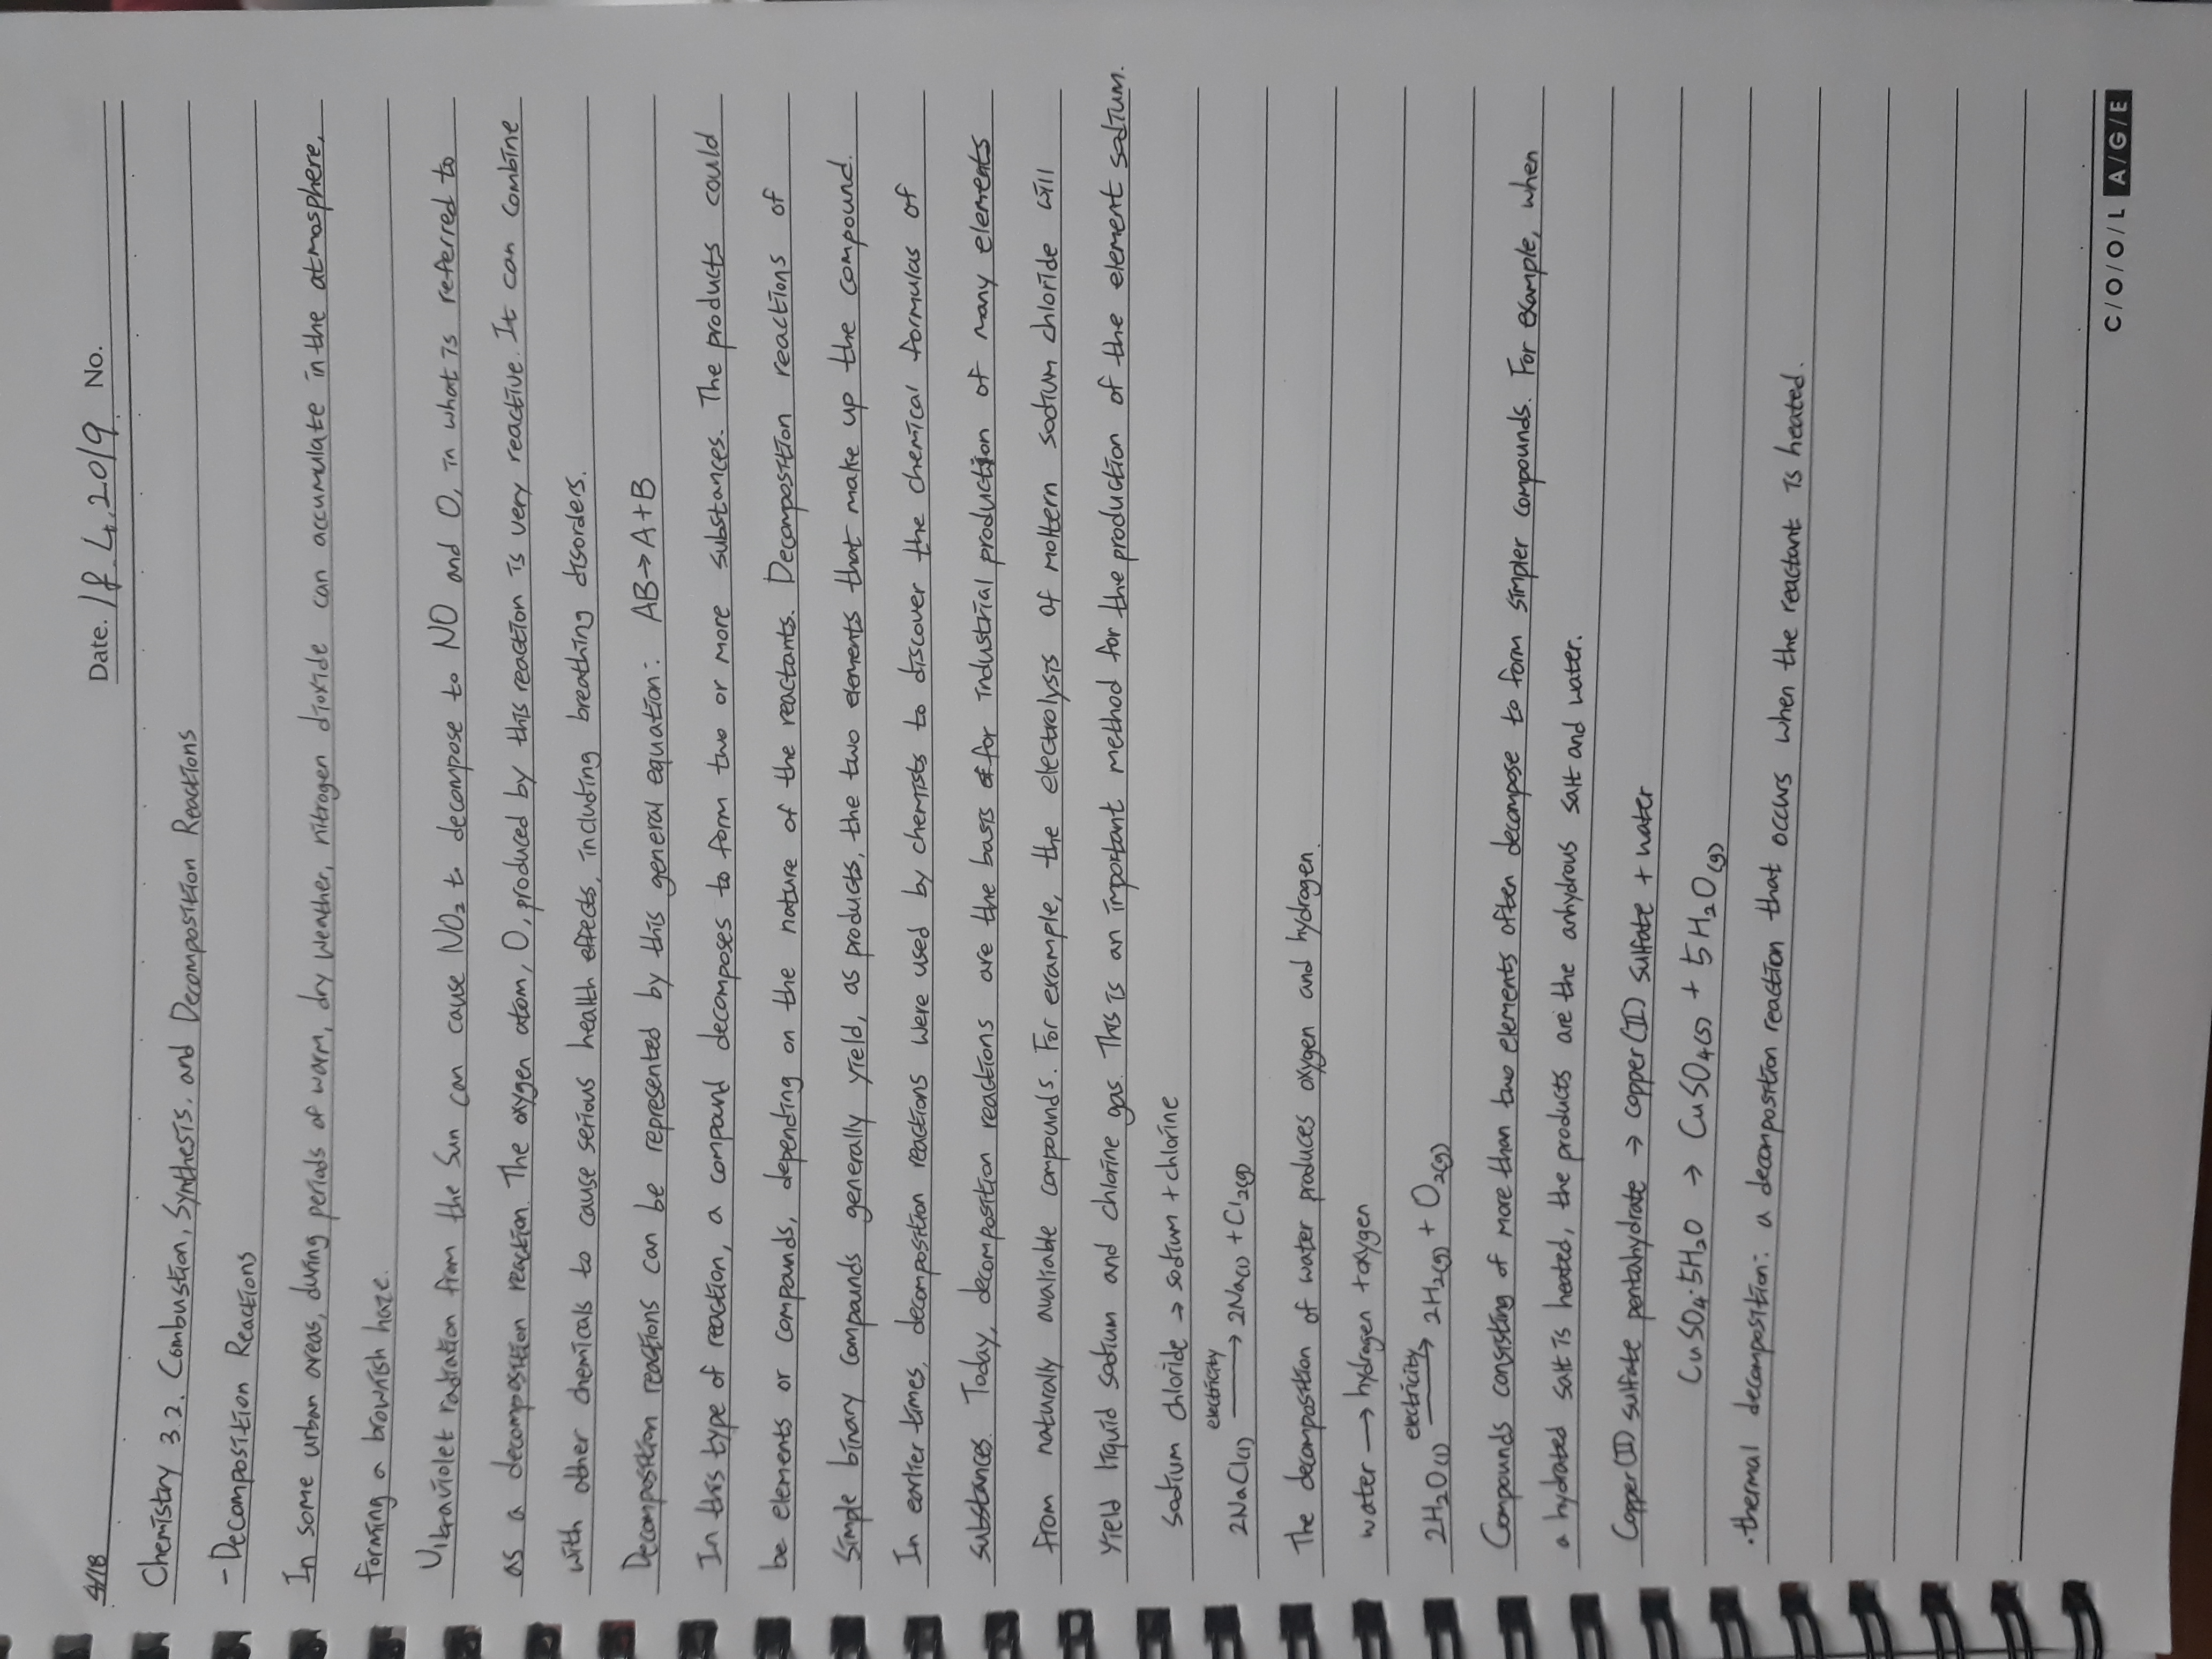 4/18
Date. 18. 4. 2019 No.
Chemistry 3.2. Combustion, Synthesis, and Decomposition Reactions
- Decomposition Reactions
In some urban areas, during periods of warm, dry weather, nitrogen dioxide can accumulate in the atmosphere,
forming a brownish haze.
Ultraviolet radiation from the Sun can cause NO₂ to decompose to NO and O, in what is referred to
as a decomposition reaction. The oxygen atom, O, produced by this reaction is very reactive. It can combine
with other chemicals to cause serious health effects, including breathing disorders.
Decomposition reactions can be represented by this general equation: AB → A + B
In this type of reaction, a compound decomposes to form two or more substances. The products could
be elements or compounds, depending on the nature of the reactants. Decomposition reactions of
simple binary compounds generally yield, as products, the two elements that make up the compound.
In earlier times, decomposition reactions were used by chemists to discover the chemical formulas of
substances. Today, decomposition reactions are the basis for industrial production of many elements
from naturally avaliable compounds. For example, the electrolysis of moltern sodium chloride will
yield liquid sodium and chlorine gas. This is an important method for the production of the element sodium.
sodium chloride → sodium + chlorine
electricity
2NaCl(l) → 2Na(l) + Cl₂(g)
The decomposition of water produces oxygen and hydrogen.
water → hydrogen + oxygen
electricity
2H₂O(l) → 2H₂(g) + O₂(g)
Compounds consisting of more than two elements often decompose to form simpler compounds. For example, when
a hydrated salt is heated, the products are the anhydrous salt and water.
Copper(II) sulfate pentahydrate → copper(II) sulfate + water
CuSO₄·5H₂O → CuSO₄(s) + 5H₂O(g)
·thermal decomposition: a decomposition reaction that occurs when the reactant is heated.
C/O/O/L A/G/E